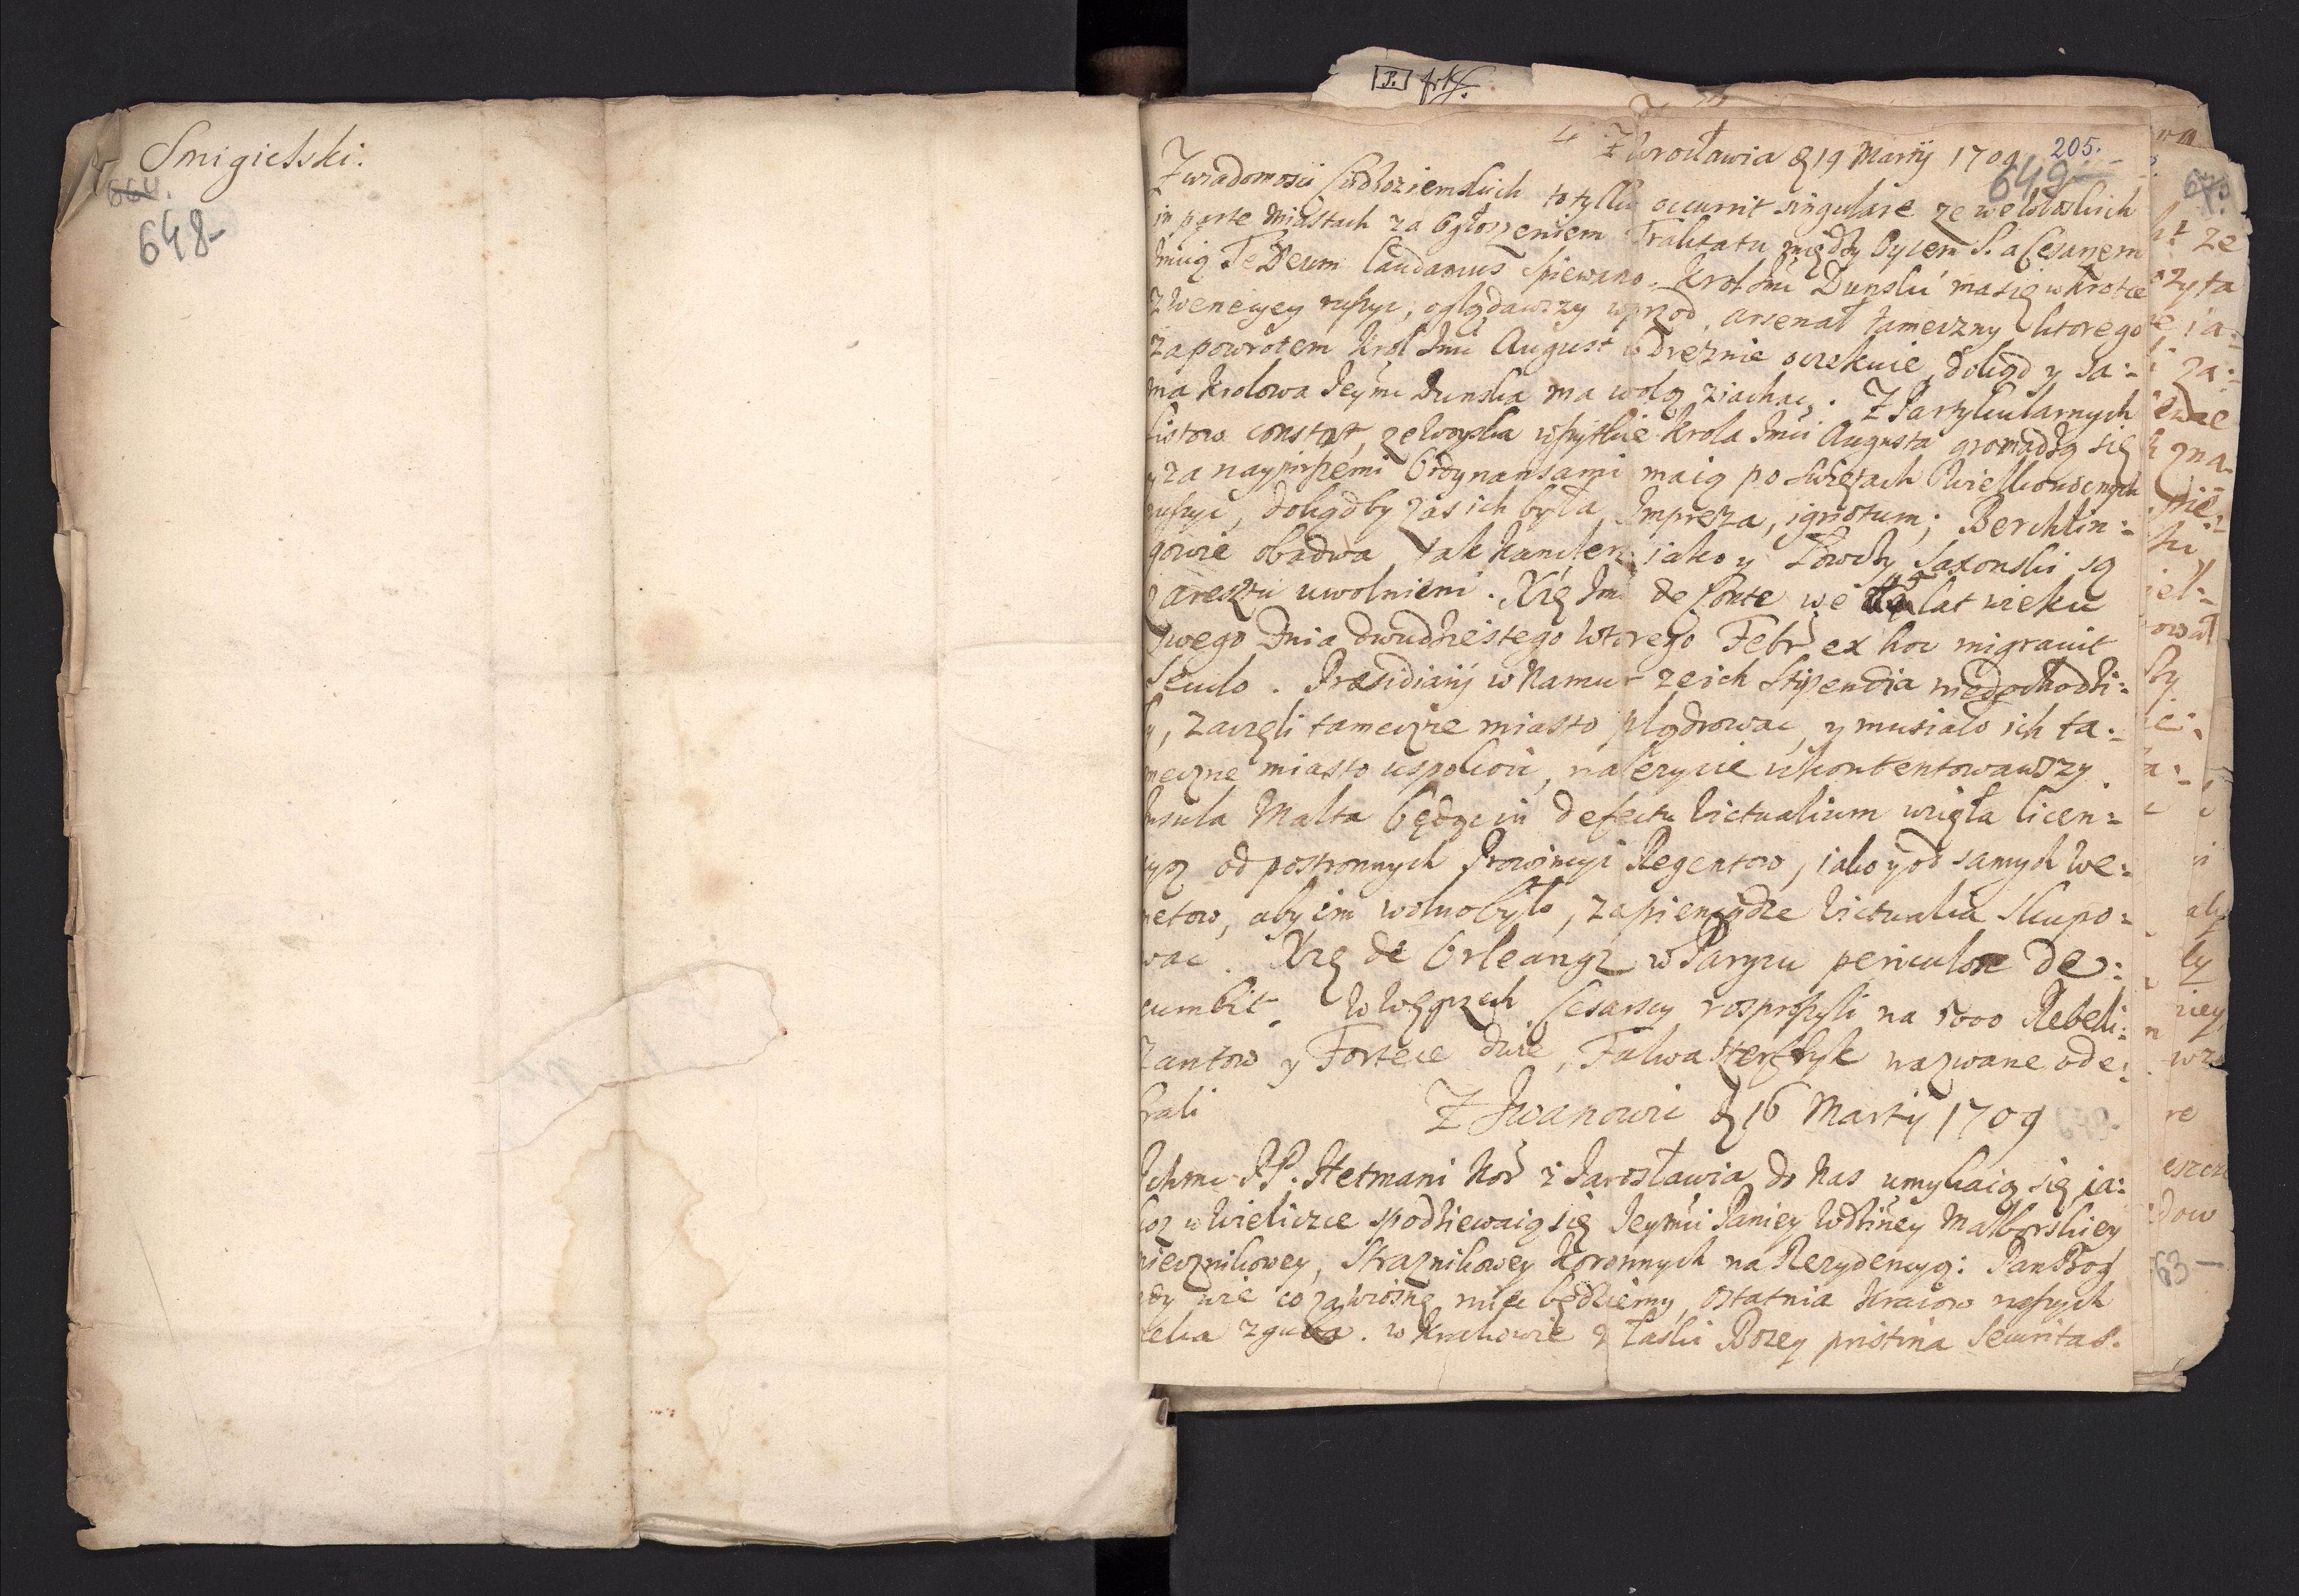 Smigielski.
664.
648-
P.
4 Z Wrocławia d 19 Martij 1709
205.
649
Z wiadomosci Cudzoziemskich to tylko occurrit singulare ze we Włoskich
in parte Miastach za ogłoszeniem Traktatu między Oycem S. a Cesarzem
Jmcią Te Deum laudamus spiewano. Krol Jmć Dunski ma się w krotce
z Weneciey ruszyc, oglądawszy wprzod arsenał tameczny ktorego
za powrotem Krol Jmć August w Dreznie oczekuie, dokąd y sa:
ma Krolowa Jeymc Dunska ma wolą ziachac. Z Partykularnych
listow constat, ze woyska wszytkie Krola Jmci Augusta gromadzą się
y za naypirszemi Ordynansami maią po swiętach Wielkonocnych
ruszyc, dokądby zas ich była Impreza, ignotum; Berchlin:
gowie obadwa tak Kanclerz iako y Łowczy Saxonski są
z aresztu uwolnieni. Xżę Jmc de Conte we lat wieku
swego Dnia dwudziestego wtorego Febr ex hoc migravit
seculo. Præsidiarij w Namur ze ich Stipendia niedochodzi:
ły, zaczęli tameczne miasto plądrowac, y musiało ich ta:
meczne miasto uspokoic, nalezycie ukontentowawszy
Insula Malta będąc in defectu Victualium wzięła licen:
cyą od postronnych Prowincyi Regentow, iako y od samych We:
netow, aby im wolno było, za pieniądze Victualia skupo:
wac. Xżę de Orleangz w Paryzu periculose de:
cumbit. W Węgrzech Cesarscy rosproszyli na 5000 Rebeli:
zantow y Fortece dwie, nazwane ode:
brali
Z Iwanowic d 16 Martij 1709
Ichmc PP. Hetmani Kor z Jarosławia do Nas umykaią się ia:
koz w Wieliczce spodziewaią się Jeymci Paniey Wdziney Malborskiey
Miecznikowey, Straznikowey Koronnych na Rezydencyą: Pan Bog
wie co za wiosnę miec będziemy, ostatnia Kraiow naszych
zguba. w Krakowie z łaski Bozey pristina securitas.
63-